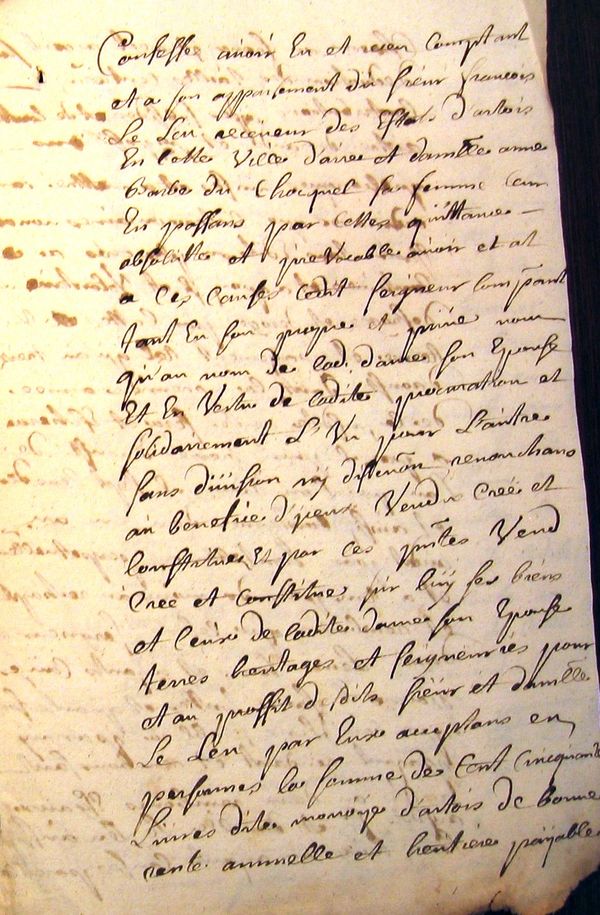 Confesse avoir Eu et receu Comptant
et a son appaisement du sieur François
Le Leu receueur des Estats d'artois
En cette Ville d'aire et damlle anne
Barbe du Chocquel sa femme leur
En passant par cettes quittance
absolutte et jrreVocable avoir et at
a Ces Causes Ledit seigneur Compant
tant En son propre et privé nom
qu'au nom de lad. dame son Epouse
Et En Vertu de ladite procuration et
solidairement L'Vn pour L'autre
sans diuision nÿ discution renonchans
au benefice d'jceux Vendu Creé et
Constitué Et par ces pntes Vend
Crée et Constitue sur luÿ ses biens
et Ceux de ladite dame son Epouse
terres heritages et seigneuries pour
et au proffit desdits sieur et damlle
Le Leu par Eux acceptans en
personnes la somme de Cent Cincquante
Liures dite monoye d'artois de bonne
rente annuelle et heritiere paÿable